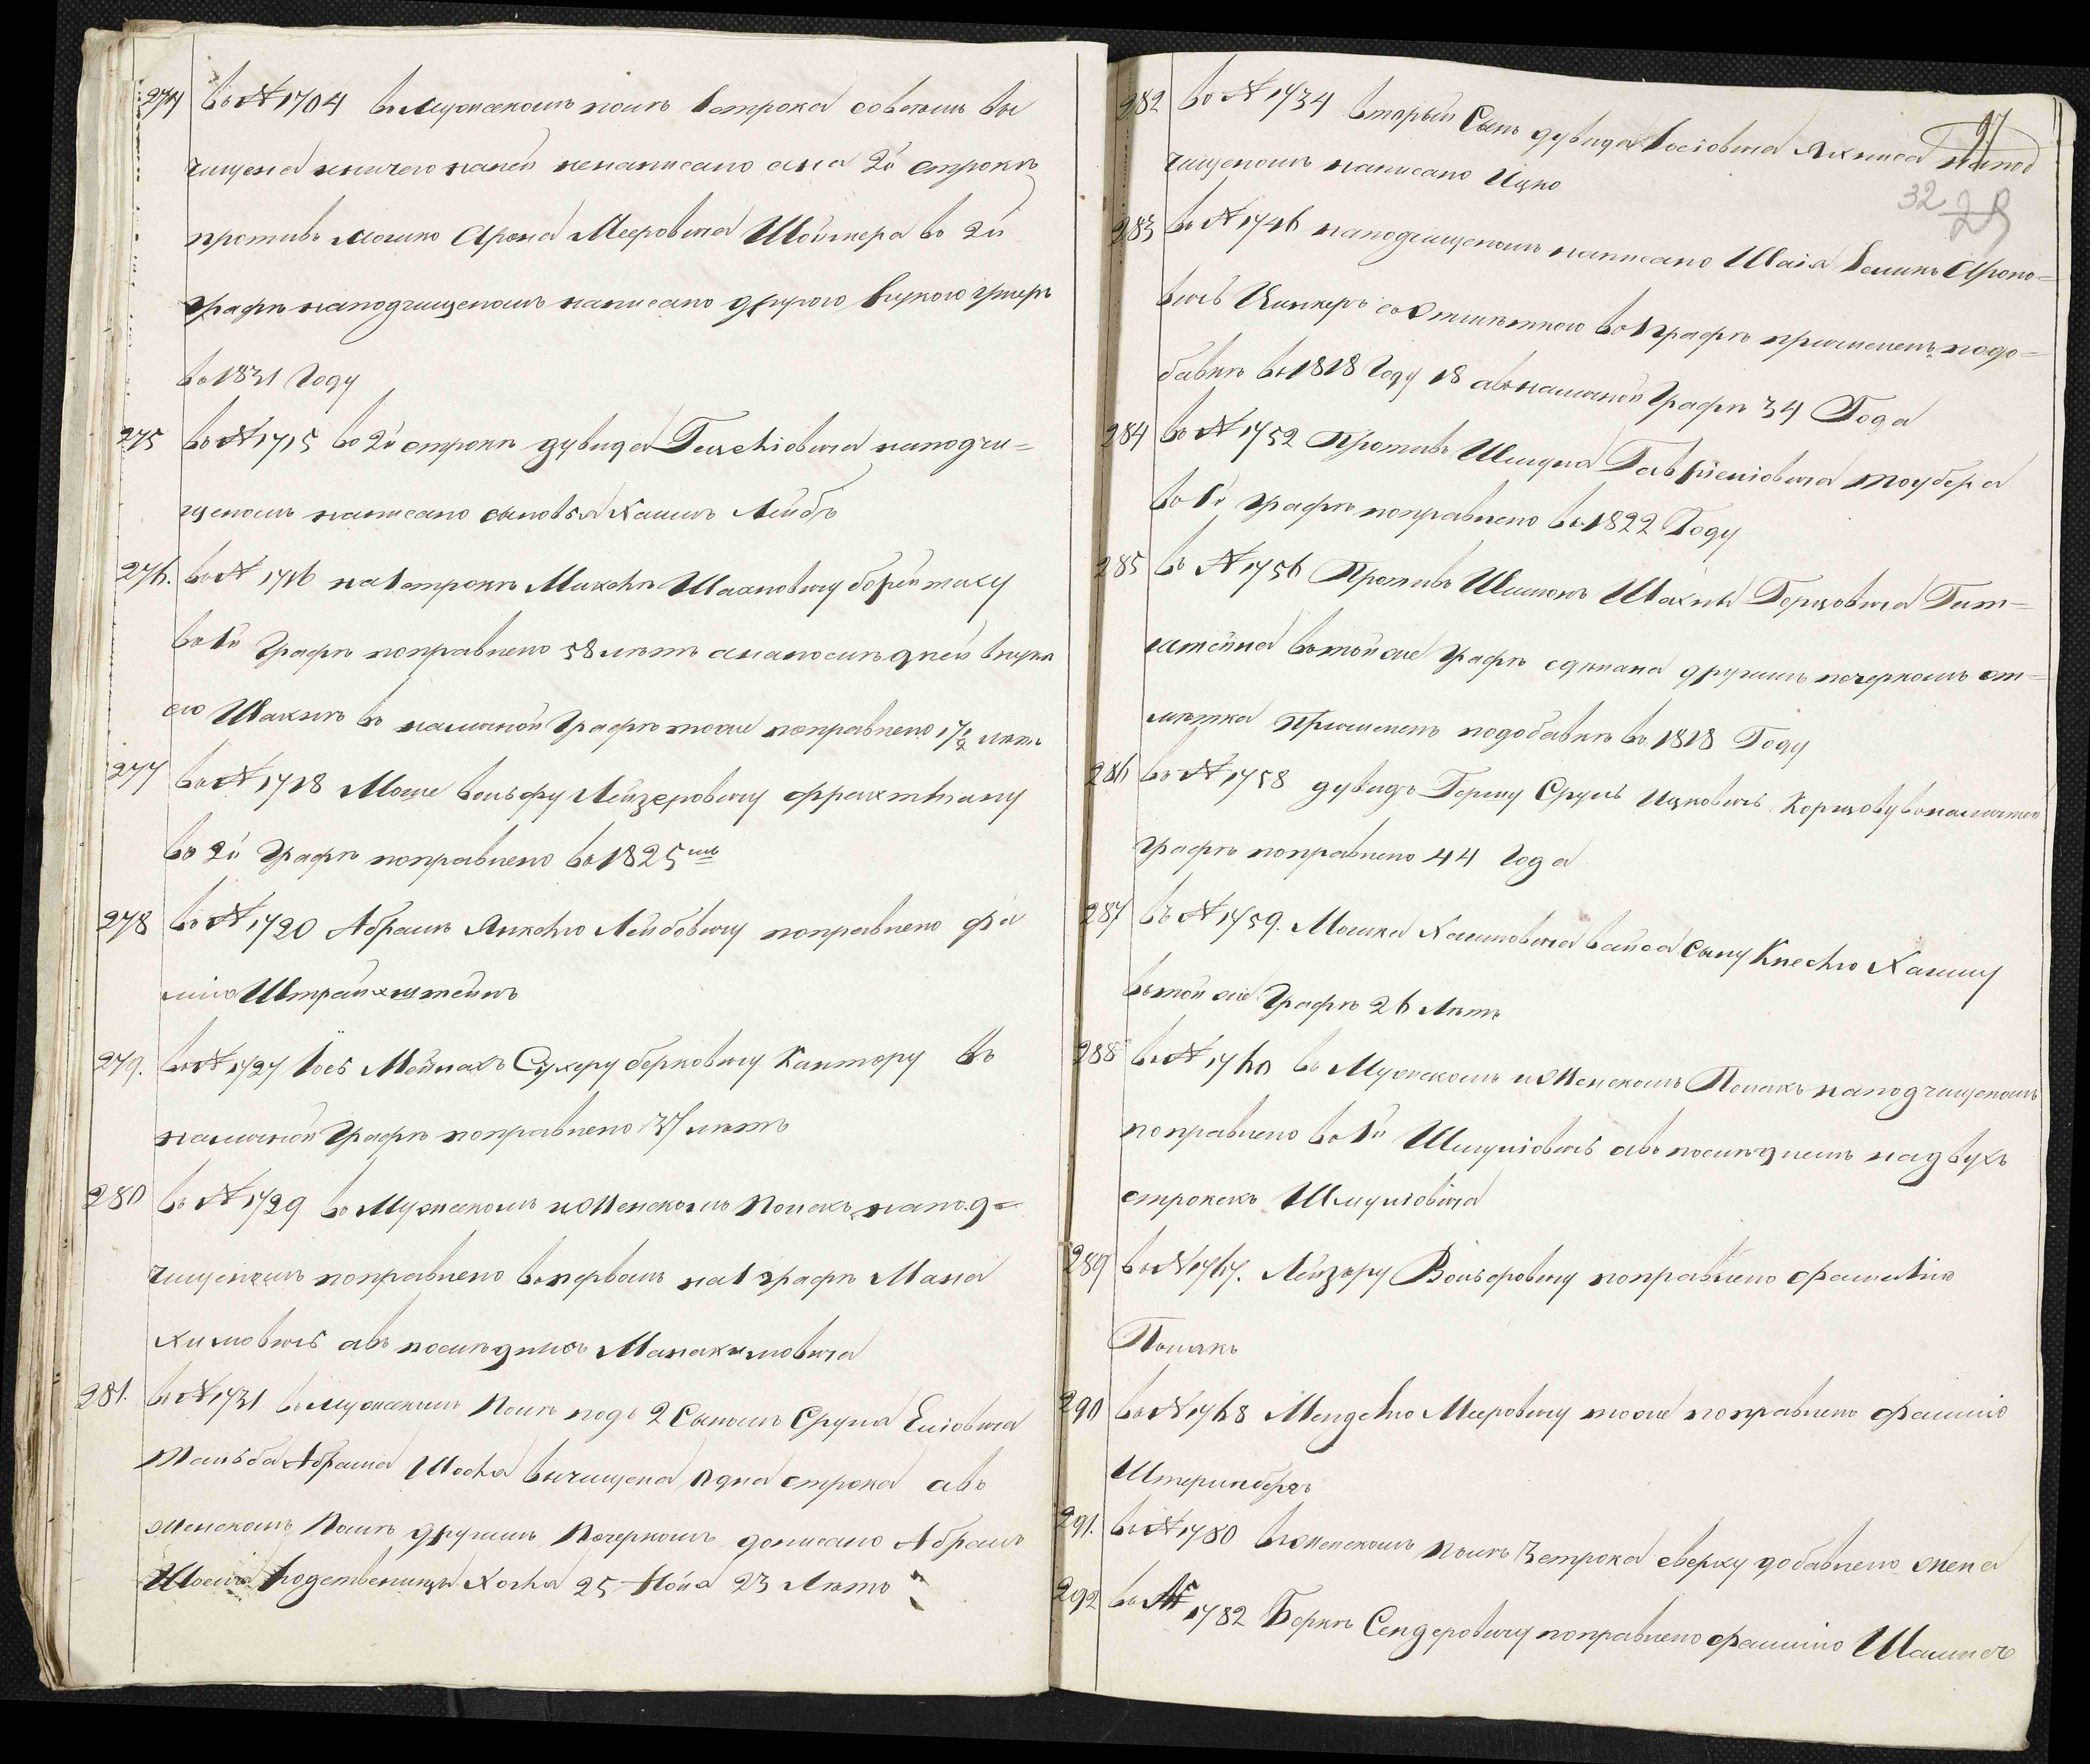 274 въ № 1704 въ Мужескомъ полѣ 1 строка совсемъ вы
чищена иничего наней ненаписано ана 2й строкѣ
противъ Мошко Арона Мееровича Шойхера во 2й
графѣ наподчищеномъ написано другою рукою умеръ
въ 1831 Году
275 въ № 1715 во 2й строкѣ дувида Гецелiовича наподчи=
щеномъ написано сыновья Хаимъ Лейбъ
276. въ № 1716 на 1 строкѣ Михелѣ Шахновичу
въ 1й Графѣ поправлено 58 лѣтъ анапослѣдней внукѣ
его Шахнѣ въ налičной Графѣ тоже поправлено 17½ лѣтъ
277 въ № 1718 Моше Вольфу Лейзеровичу
во 2й Графѣ поправлено въ 1825мъ
278 въ № 1720 Абрамъ Янкелю Лейбовичу поправлено фа
милiо Штрайхштейнъ
279. въ № 1727 Iось Мейлахъ Сухеру берковичу Кантору въ
наличной Графѣ поправлено 37 лѣтъ
280 въ № 1729 въ Мужескомъ иЖенскомъ Полахъ напод=
чищеномъ поправлено впервомъ на 1 графѣ Мана
химовичъ авъ последнихъ Манахимовича
281. въ № 1731 въ мужескомъ Полѣ подъ 2 Сыномъ Сруля Елiовича
Абрама вычищена одна строка авъ
женскомъ Полѣ другимъ Почеркомъ дописано Абрамъ
родственицы 25 23 Лѣтъ
97
32 28
282 въ № 1734 вторый Сынъ дувида Iосiовича Ахниса напод
чищеномъ написано Ицко
283 въ № 1746 наподчищеномъ написано Шаiя Зеликъ Ароно=
вичъ Цинкеръ соотмѣткою во 1 графѣ причисленъ подо=
бавкѣ въ 1818 Году 18 авъ наличной Графѣ 34 Года
284 въ № 1752 Противъ Шмуля Гаврiелiовича Таубера
въ 1й графѣ поправлено въ 1822 Году
285 въ № 1756 Противъ Шлiомъ Шахна Герцовича Гит=
штейна втой же Графѣ сделана другимъ почеркомъ от=
мѣтка Причисленъ подобавкѣ въ 1818 Году
286 въ № 1758 дувидъ Гершу Сруль Ицковичъ вналичной
графѣ поправлено 44 Года
287 въ № 1759. Мошка Хаимовича Вайса Сыну Хаиму
втой же Графѣ 26 Лѣтъ
288 въ № 1760 въ Мужескомъ иЖенскомъ Полахъ наподчищеномъ
поправлено въ 1й Шмулiовичъ авъ последнемъ надвухъ
строкахъ Шмулiовича
289 въ № 1767. Лейзеру Вольфовичу поправлено Фамилiю
Полякъ
290 въ № 1768 Менделю Мееровичу тоже поправлено Фамилiю
Штеринбергъ
291. въ № 1780 въ женскомъ полѣ 3 строка сверху добавлено жена
292 въ № 1782 Беркѣ Сендеровичу поправлено Фамилiю